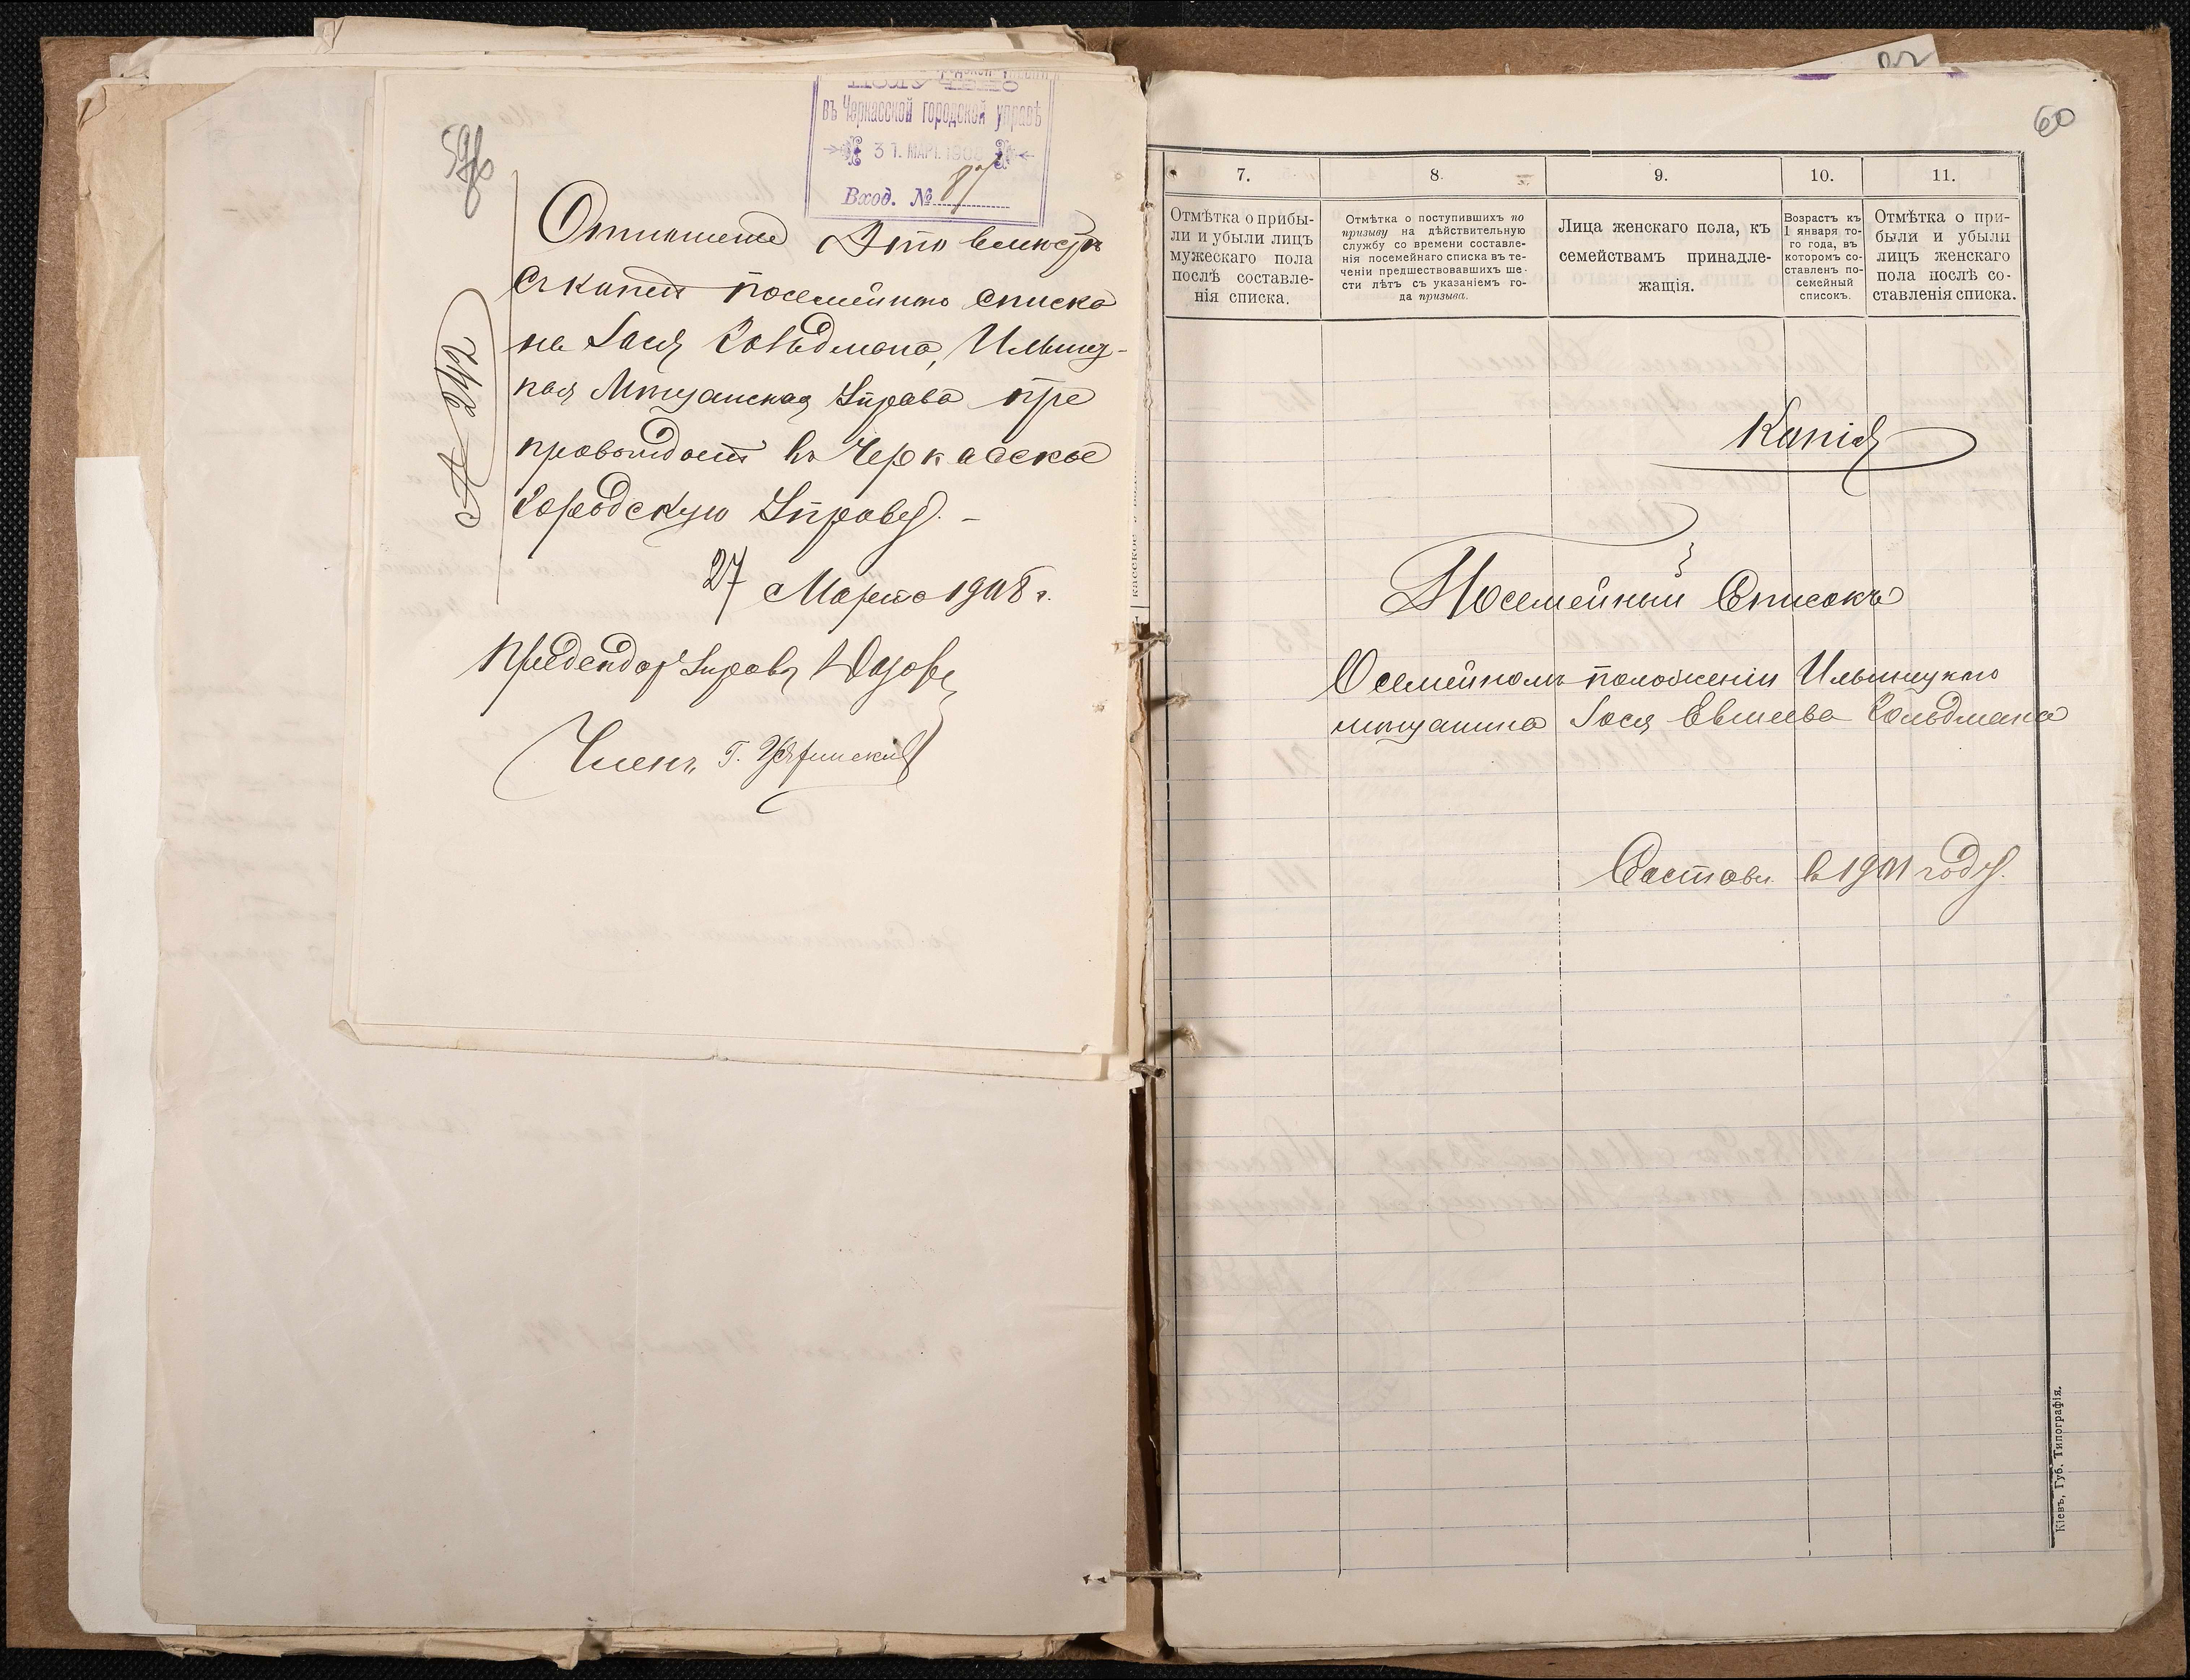 59об
ПОЛУЧЕНО
въ Черкасской городской управѣ
31. МАР. 1908
Вход. № 87
Отношеніе это вмѣстѣ
съ копіей посемейнаго списка
на Іося Гольдмана, Ильинец-
кая Мѣщанская Управа пре
провождает въ Черкасскую
Городскую Управу. -
27 Марта 1908 г.
Управы
Членъ Г.
№
60
7.
8.
9.
10.
11.
Отмѣтка о прибы-
ли и убыли лицъ
мужескаго пола
послѣ составле-
нія списка.
Отмѣтка о поступившихъ по
призыву на дѣйствительную
службу со времени составле-
нія посемейнаго списка въ те-
ченіи предшествовавшихъ ше-
сти лѣтъ съ указаніемъ го-
да призыва.
Лица женскаго пола, къ
семействамъ принадле-
жащія.
Возрастъ къ
1 января то-
го года, въ
которомъ со-
ставленъ по-
семейный
списокъ.
Отмѣтка о при-
были и убыли
лицъ женскаго
пола послѣ со-
ставленія списка.
Копія
Посемейный Списокъ
О семейномъ положеніи Ильинецкаго
мѣщанина Іося Евшеева Гольдмана
Составл. в 1901 году.
Кіевъ, Губ. Типографія.